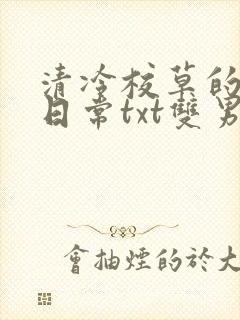 清冷校草的
日常txt雙男
會抽煙的於大